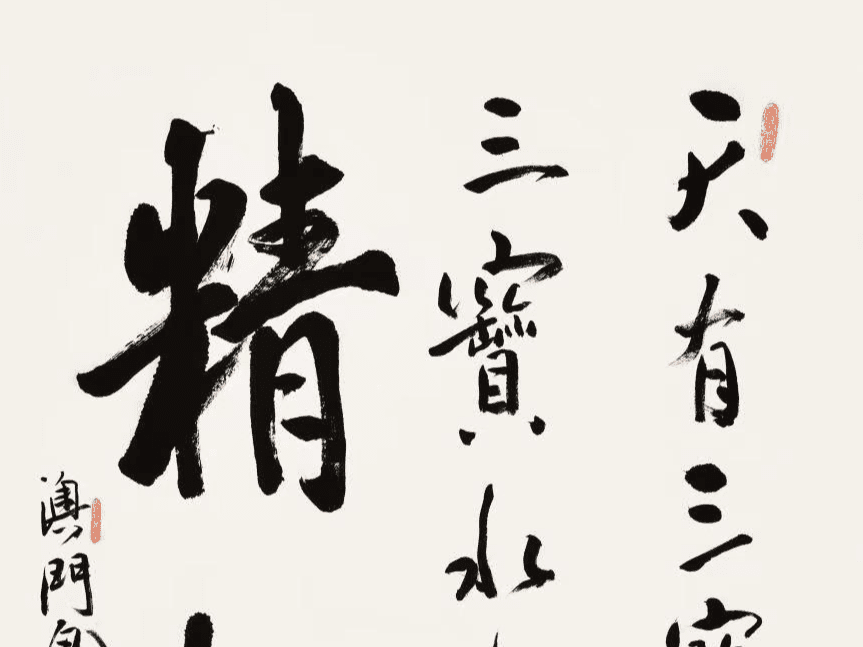 天有三寶
三寶水
精
澳門